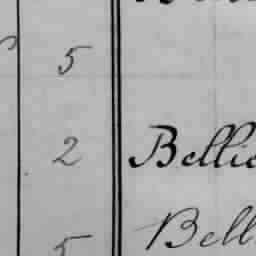 5
2 Bellie
5 Bell